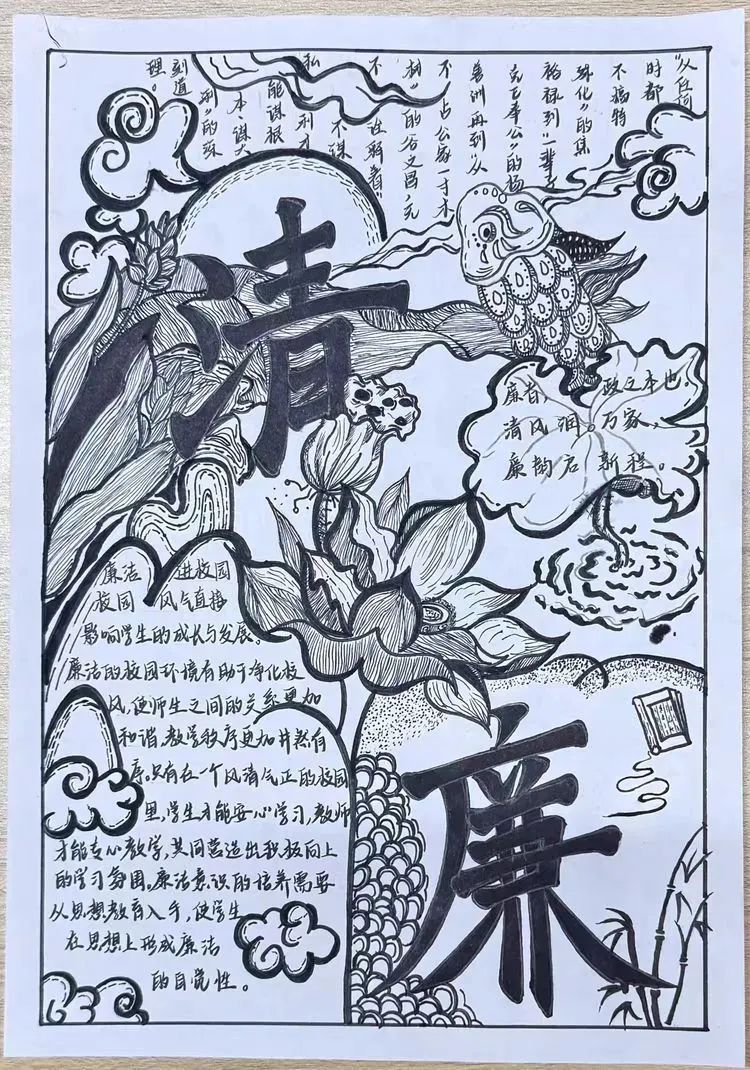 "从任何
时都
不搞特
殊化"的焦
裕禄到"一辈子
克己奉公"的杨
善洲再到"从
不占公家一寸木
材"的谷文昌,无
不诠释着"
不谋
私利才
能谋根
本、谋大
利"的深
刻道
理。
清
廉者,政之本也。
清风润万家,
廉韵启新程。
廉洁进校园
校园风气直接
影响学生的成长与发展。
廉洁的校园环境有助于净化校
风,使师生之间的关系更加
和谐,教学秩序更加井然有
序。只有在一个风清气正的校园
里,学生才能安心学习,教师
才能专心教学,共同营造出积极向上
的学习氛围。廉洁意识的培养需要
从思想教育入手,使学生
在思想上形成廉洁
的自觉性。
廉